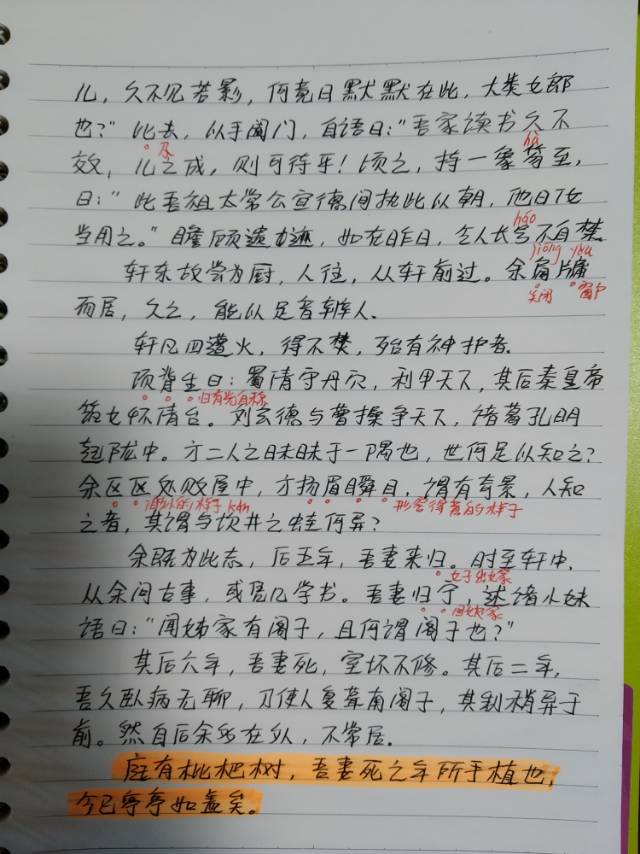 儿，久不见若影，何竟日默默在此，大类女郎
也？”比去，以手阖门，自语曰：“吾家读书久不
及
效，儿之成，则可待乎！顷之，持一象笏至，
hù
曰：“此吾祖太常公宣德间执此以朝，他日汝
当用之。”瞻顾遗迹，如在昨日，令人长号不自禁
háo
轩东故尝为厨，人往，从轩前过。余扃牖
jiōng yǒu
而居，久之，能以足音辨人.
关闭 窗户
轩凡四遭火，得不焚，殆有神护者.
项脊生曰：蜀清守丹穴，利甲天下，其后秦皇帝
归有光自称
筑女怀清台。刘玄德与曹操争天下，诸葛孔明
起陇中。方二人之昧昧于一隅也，世何足以知之？
余区区处败屋中，方扬眉瞬目，谓有奇景，人知
渺小的样子 kǎn 形容得意的样子
之者，其谓与坎井之蛙何异？
余既为此志，后五年，吾妻来归。时至轩中，
女子出嫁
从余问古事，或凭几学书。吾妻归宁，述诸小妹
回娘家
语曰：“闻姊家有阁子，且何谓阁子也？”
其后六年，吾妻死，室坏不修。其后二年，
吾久卧病无聊，乃使人复葺南阁子，其制稍异于
前。然自后余多在外，不常居.
庭有枇杷树，吾妻死之年所手植也，
今已亭亭如盖矣。